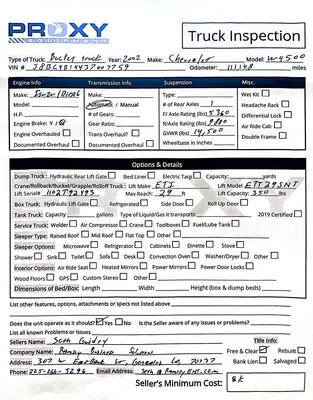 PROXY
EQUIPMENT
Truck Inspection
Type of Truck: Bucket truck Year: 2002 Make: Chevrolet Model: W4500
Odometer: 111,148 miles
Engine Info Transmission Info Suspension Misc.
Make: Make: Make: Wet Kit
Model: Automatic / Manual # of Rear Axles 1 Headache Rack
H.P. # of Gears: F/ Axle Rating (Lbs) 5360 Differential Lock
Engine Brake: Y / N Gear Ratio: R/Axle Rating (Lbs) Air Ride Cab
Engine Overhauled Trans Overhauled GVWR (lbs) 14,500 Double Frame
Documented Overhaul Documented Overhaul
Options & Details
Dump Truck: Hydraulic Rear Lift Gate Bed Liner Electric Tarp Capacity: yards
Crane/Rollback/Bucket/Grapple/Rolloff Truck: Lift Make ETI Lift Model ETT29SNT
Lift Serial# Max Reach: 29 ft Lift Capacity 350 lbs
Box Truck: Hydraulic Lift Gate Refrigerated Side Door Roll Up Door
Tank Truck: Capacity gallons Type of Liquid/Gas it transports 2019 Certified
Service Truck: Welder Air Compressor Crane Toolboxes Fuel/Lube Tank
Sleeper Type: Raised Roof Mid Roof Flat Top Other:
Sleeper Options: Microwave Refrigerator Cabinets Dinette Stove
Shower Sink Toilet Desk Convection Oven Washer/Dryer Other
Interior Options: Air Ride Seat Heated Mirrors Power Mirrors Power Door Locks
Wood Floors GPS Custom Stereo Other:
Dimensions of Bed/Box: Length Width Height (box & dump beds)
List other features, options, attachments or specs not listed above
Does the unit operate as it should? Yes No Is the Seller aware of any issues or problems?
List all known Problems or Issues:
Sellers Name: Seth Guidry Title Info:
Company Name: Free & Clear Rebuilt:
Address: Bank Lien Salvaged
Phone: 225-766-5296 Email Address:
Seller's Minimum Cost: $